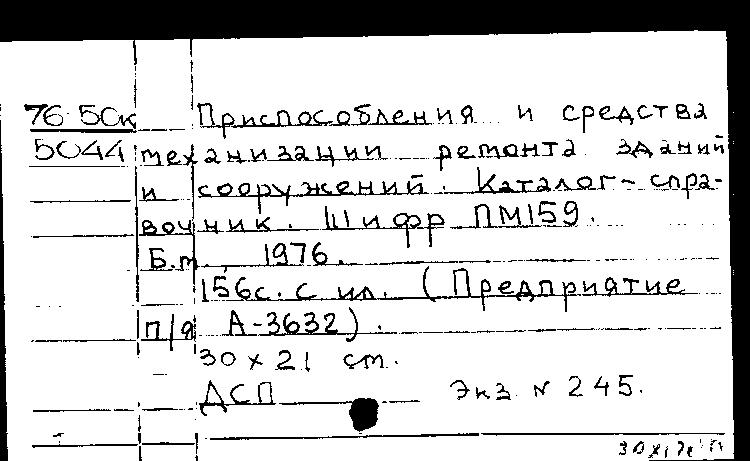 76-50к Приспособления и средства
5044 механизации ремонта зданий
и сооружений. Каталог-спра-
вочник. Шифр ПМ159.
Б.м., 1976.
156с. с ил. (Предприятие
п/я А-3632).
30 х 21 см.
ДСП Экз N 245.